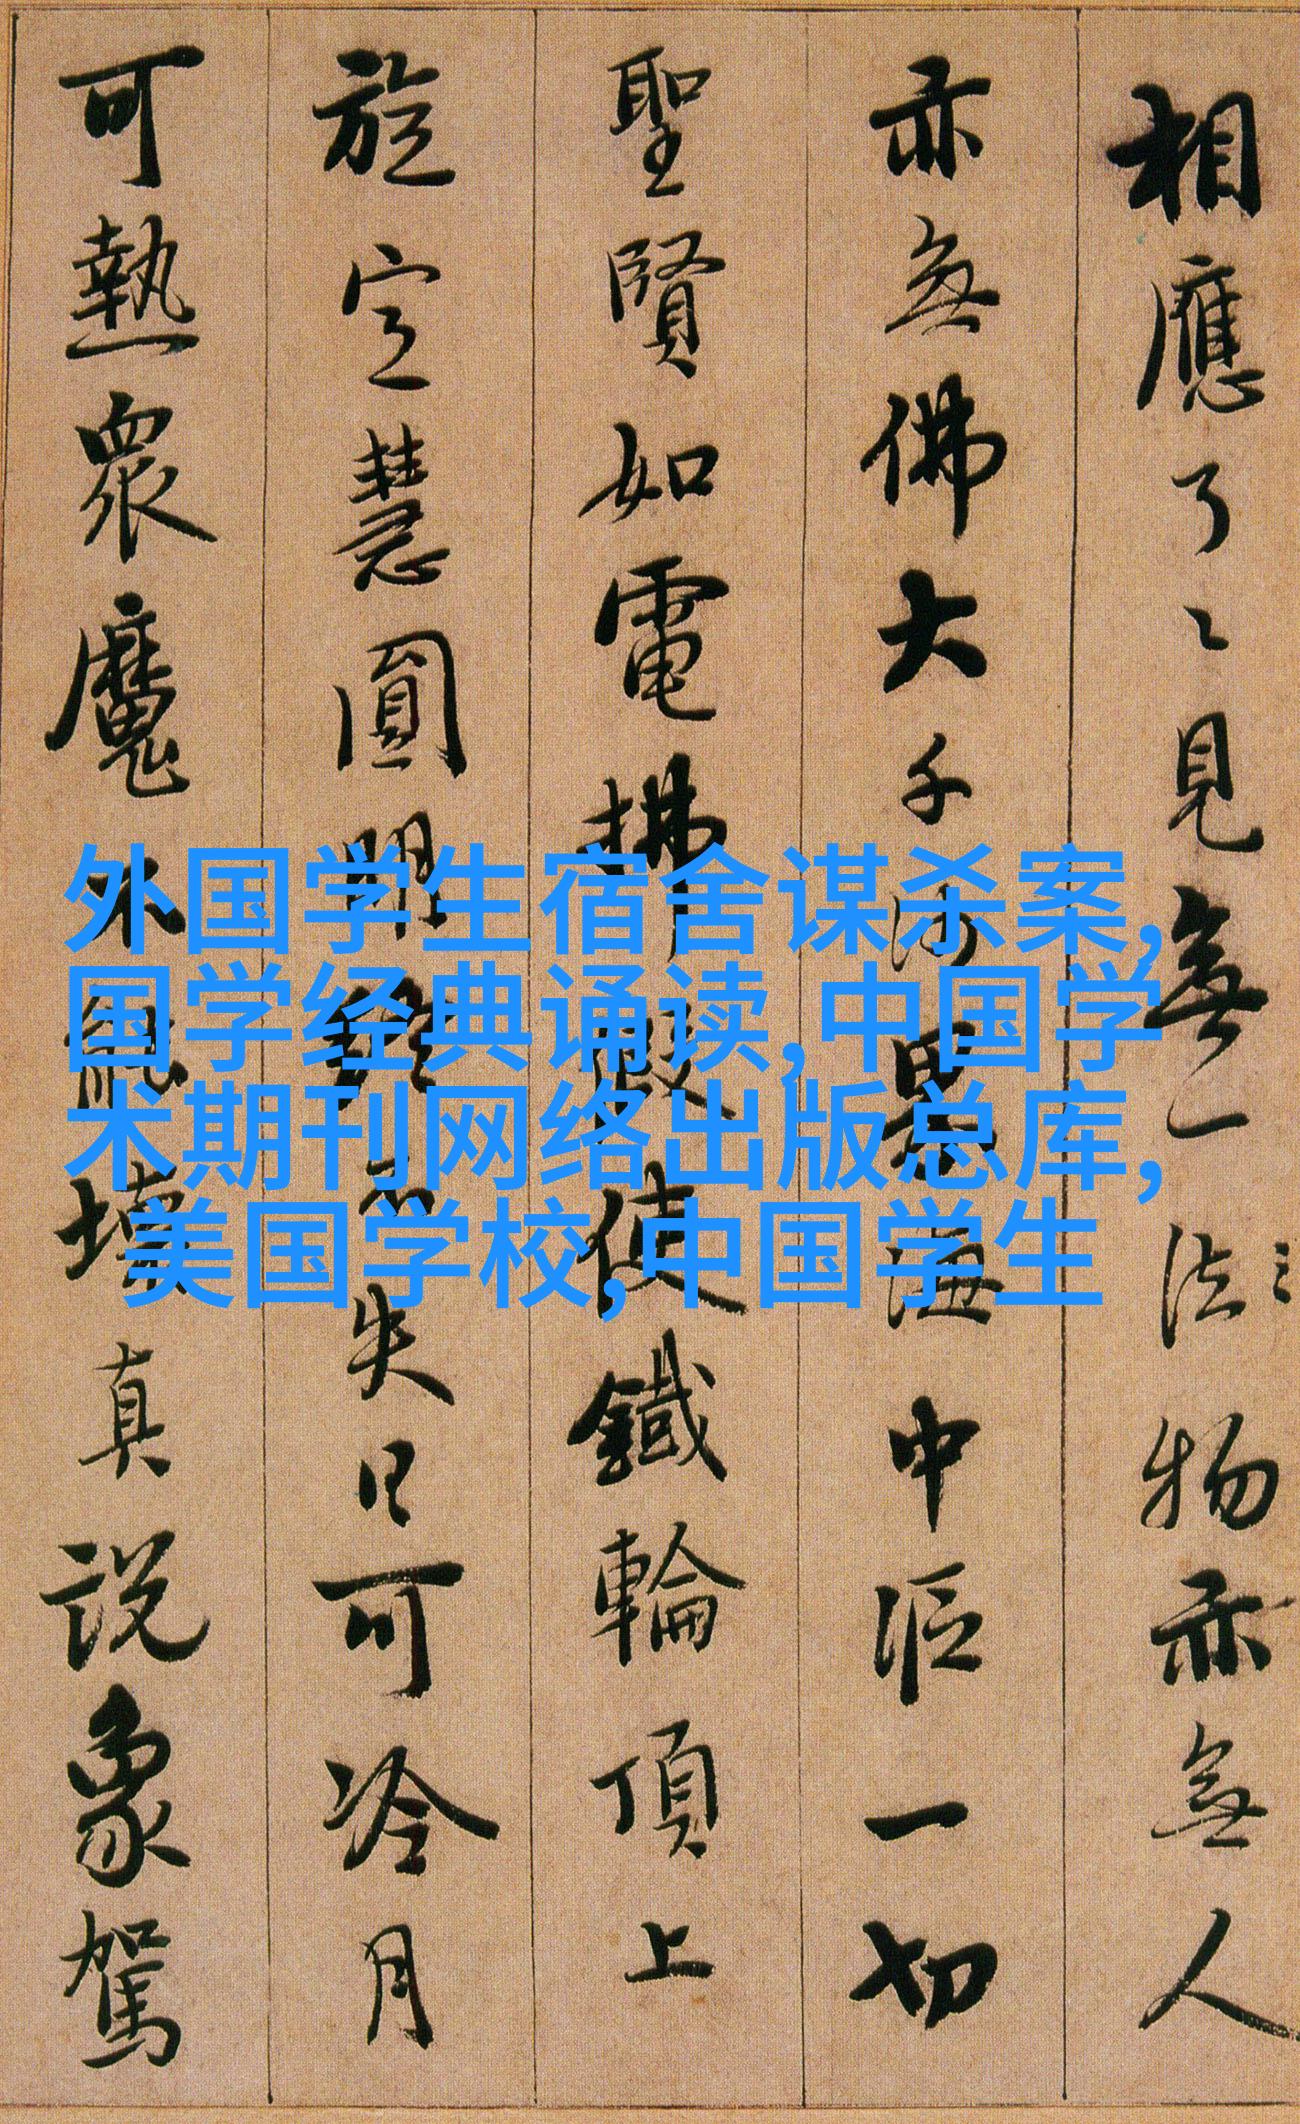 相應了〻見無一法物亦無人
亦無佛大千沙界海中漚一切
聖賢如電拂假使鐵輪頂上
旋定慧圓明終不失日可冷月
可熱眾魔外說壞真說象駕
外国学生宿舍谋杀案,
国学经典诵读,中国学
术期刊网络出版总库,
美国学校,中国学生